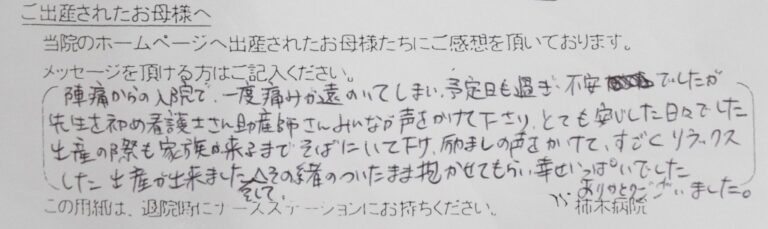 ご出産されたお母様へ
当院のホームページへ出産されたお母様たちにご感想を頂いております。
メッセージを頂ける方はご記入ください。
陣痛からの入院で、一度痛みが遠のいてしまい、予定日も過ぎ、不安でしたが
先生を初め看護士さん助産師さんみんなが声をかけて下さり、とても安心した日々でした
出産の際も家族が来るまでそばにいて下さり、励ましの声をかけて、すごくリラックス
した出産が出来ました。そして、その緒のついたまま抱かせてもらい幸せいっぱいでした
ありがとうございました。
この用紙は、退院時にナースステーションにお持ちください。 柿木病院